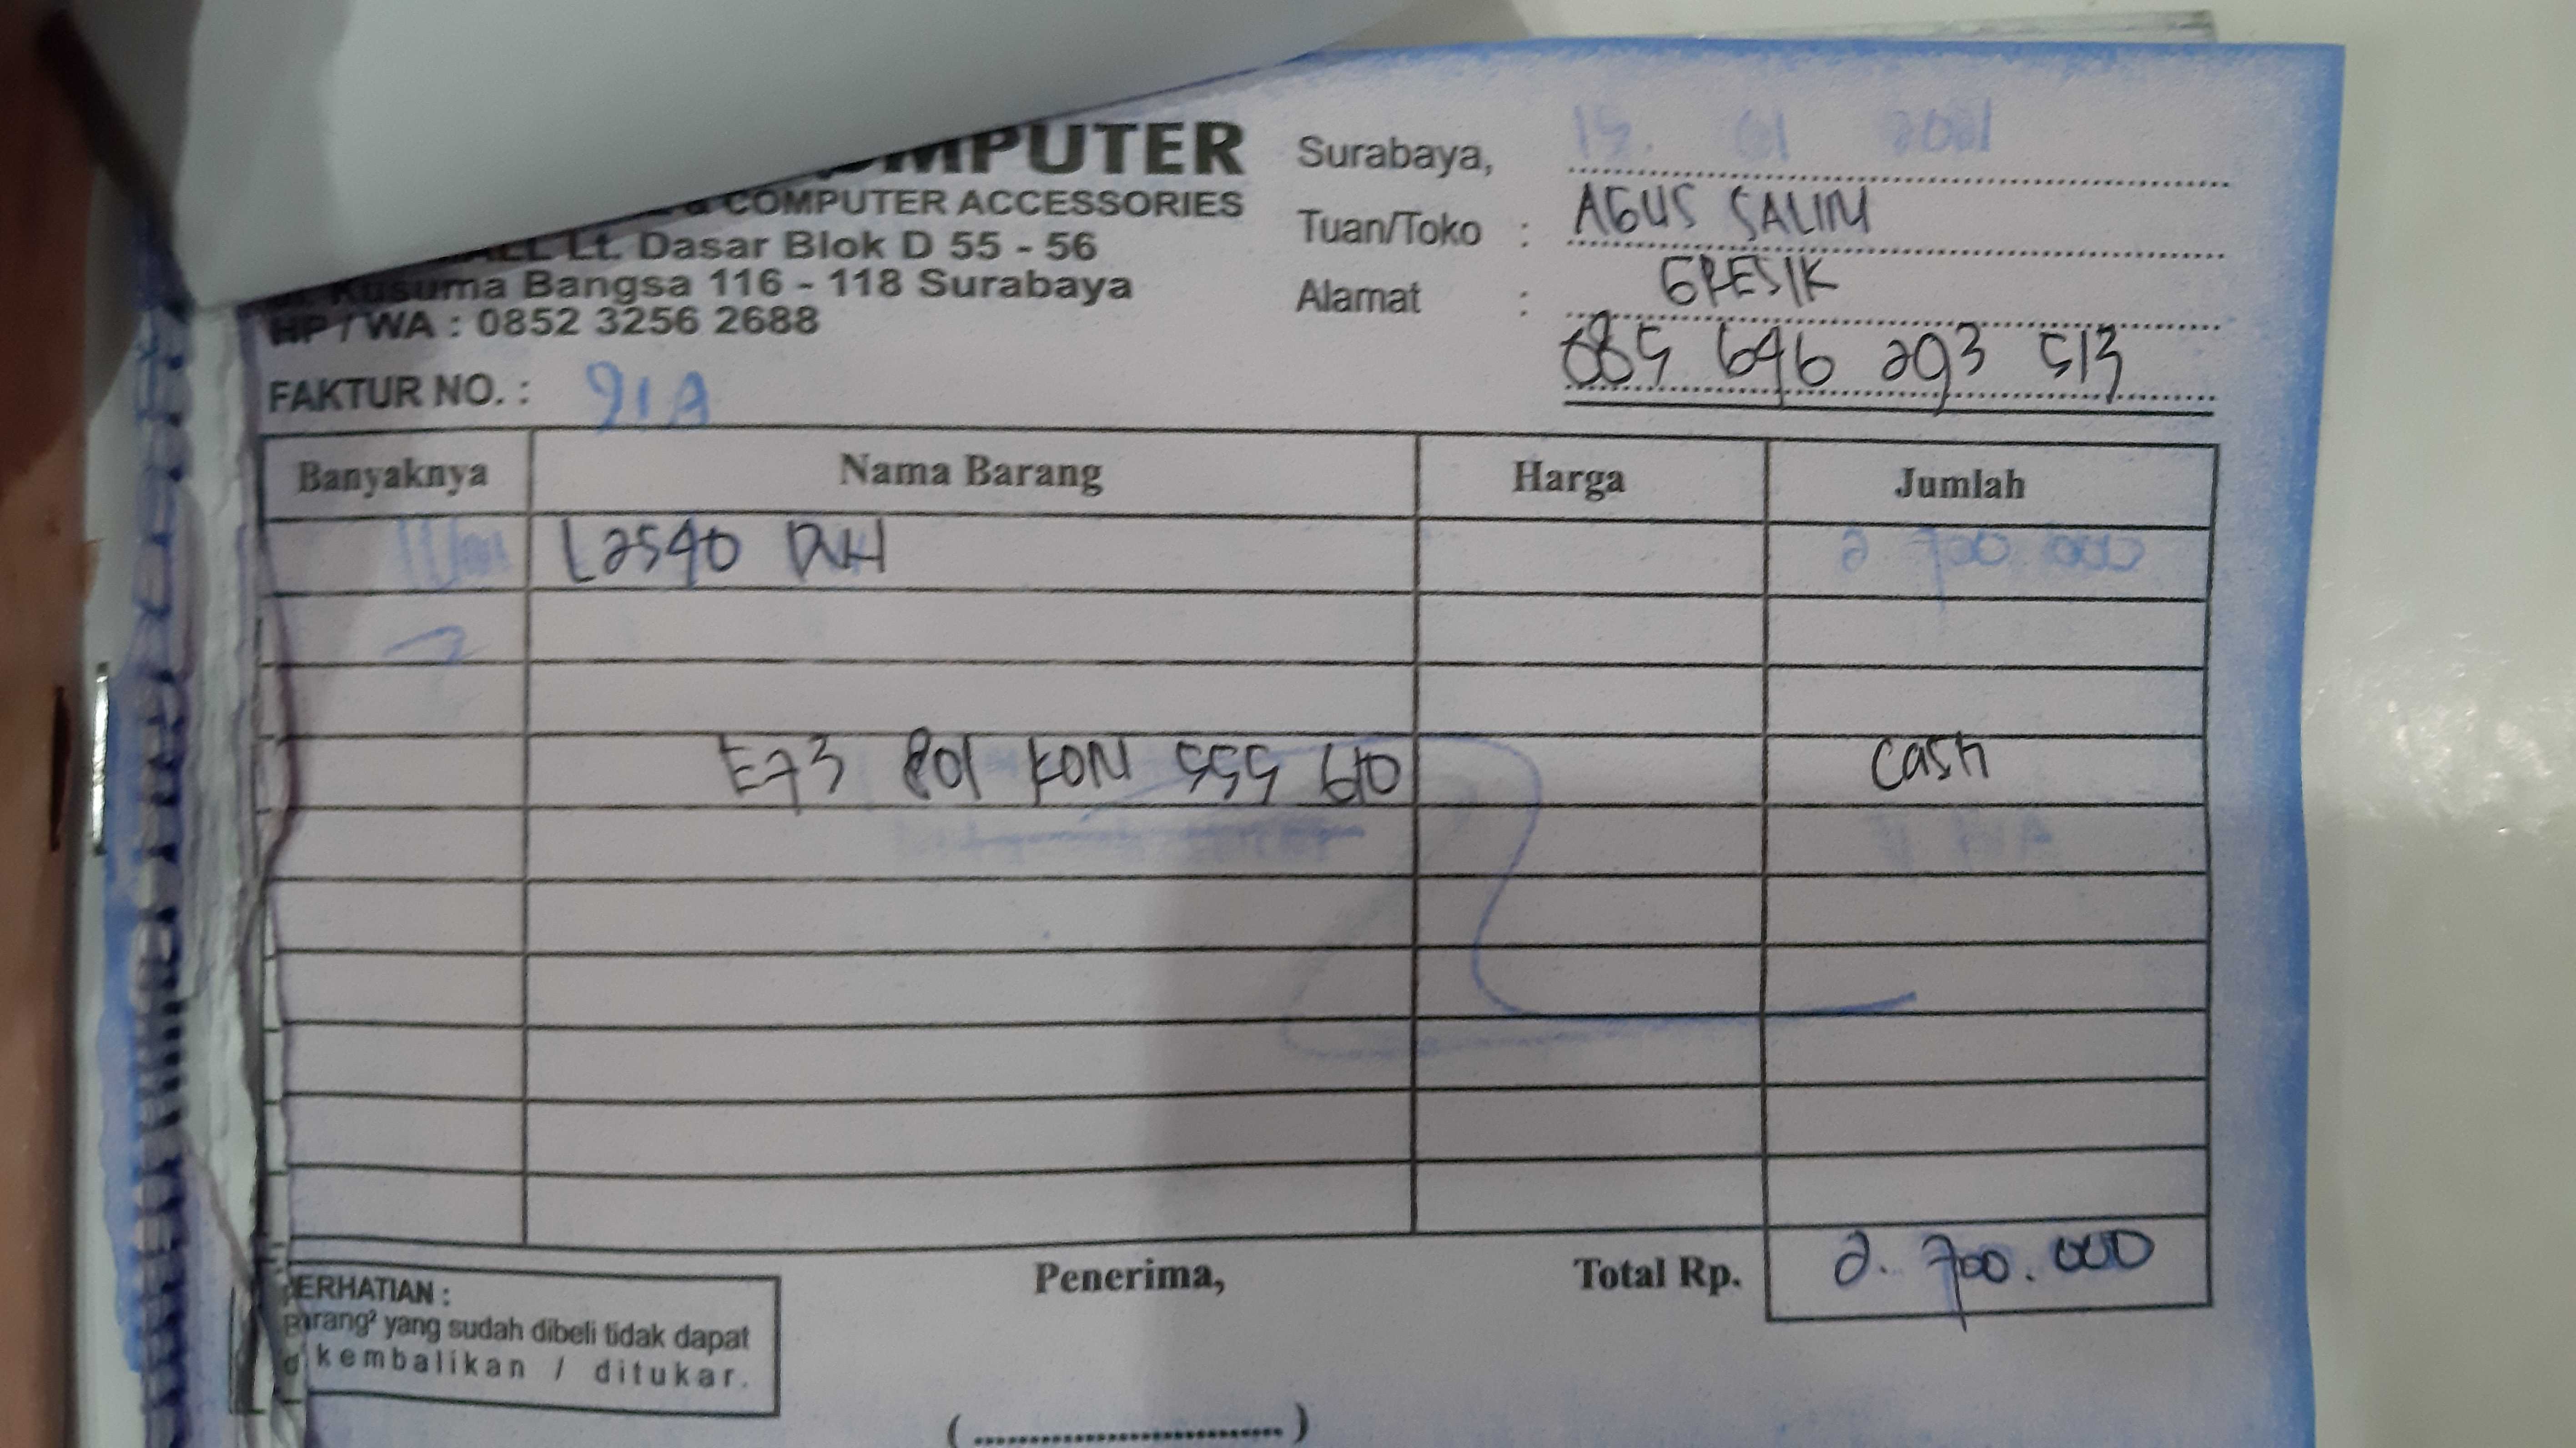 COMPUTER
& COMPUTER ACCESSORIES
Lt. Dasar Blok D 55 - 56
Kusuma Bangsa 116 - 118 Surabaya
HP / WA : 0852 3256 2688
FAKTUR NO. :
Surabaya, 15. 01 2021
Tuan/Toko : AGUS SALIM
Alamat : GRESIK
085 646 293 513
Banyaknya Nama Barang Harga Jumlah
L2540 DW 2 700 000
E73 801 K0N 555 610 Cash
Total Rp. 2. 700. 000
Penerima,
PERHATIAN :
Barang² yang sudah dibeli tidak dapat
dikembalikan / ditukar.
(..............................)